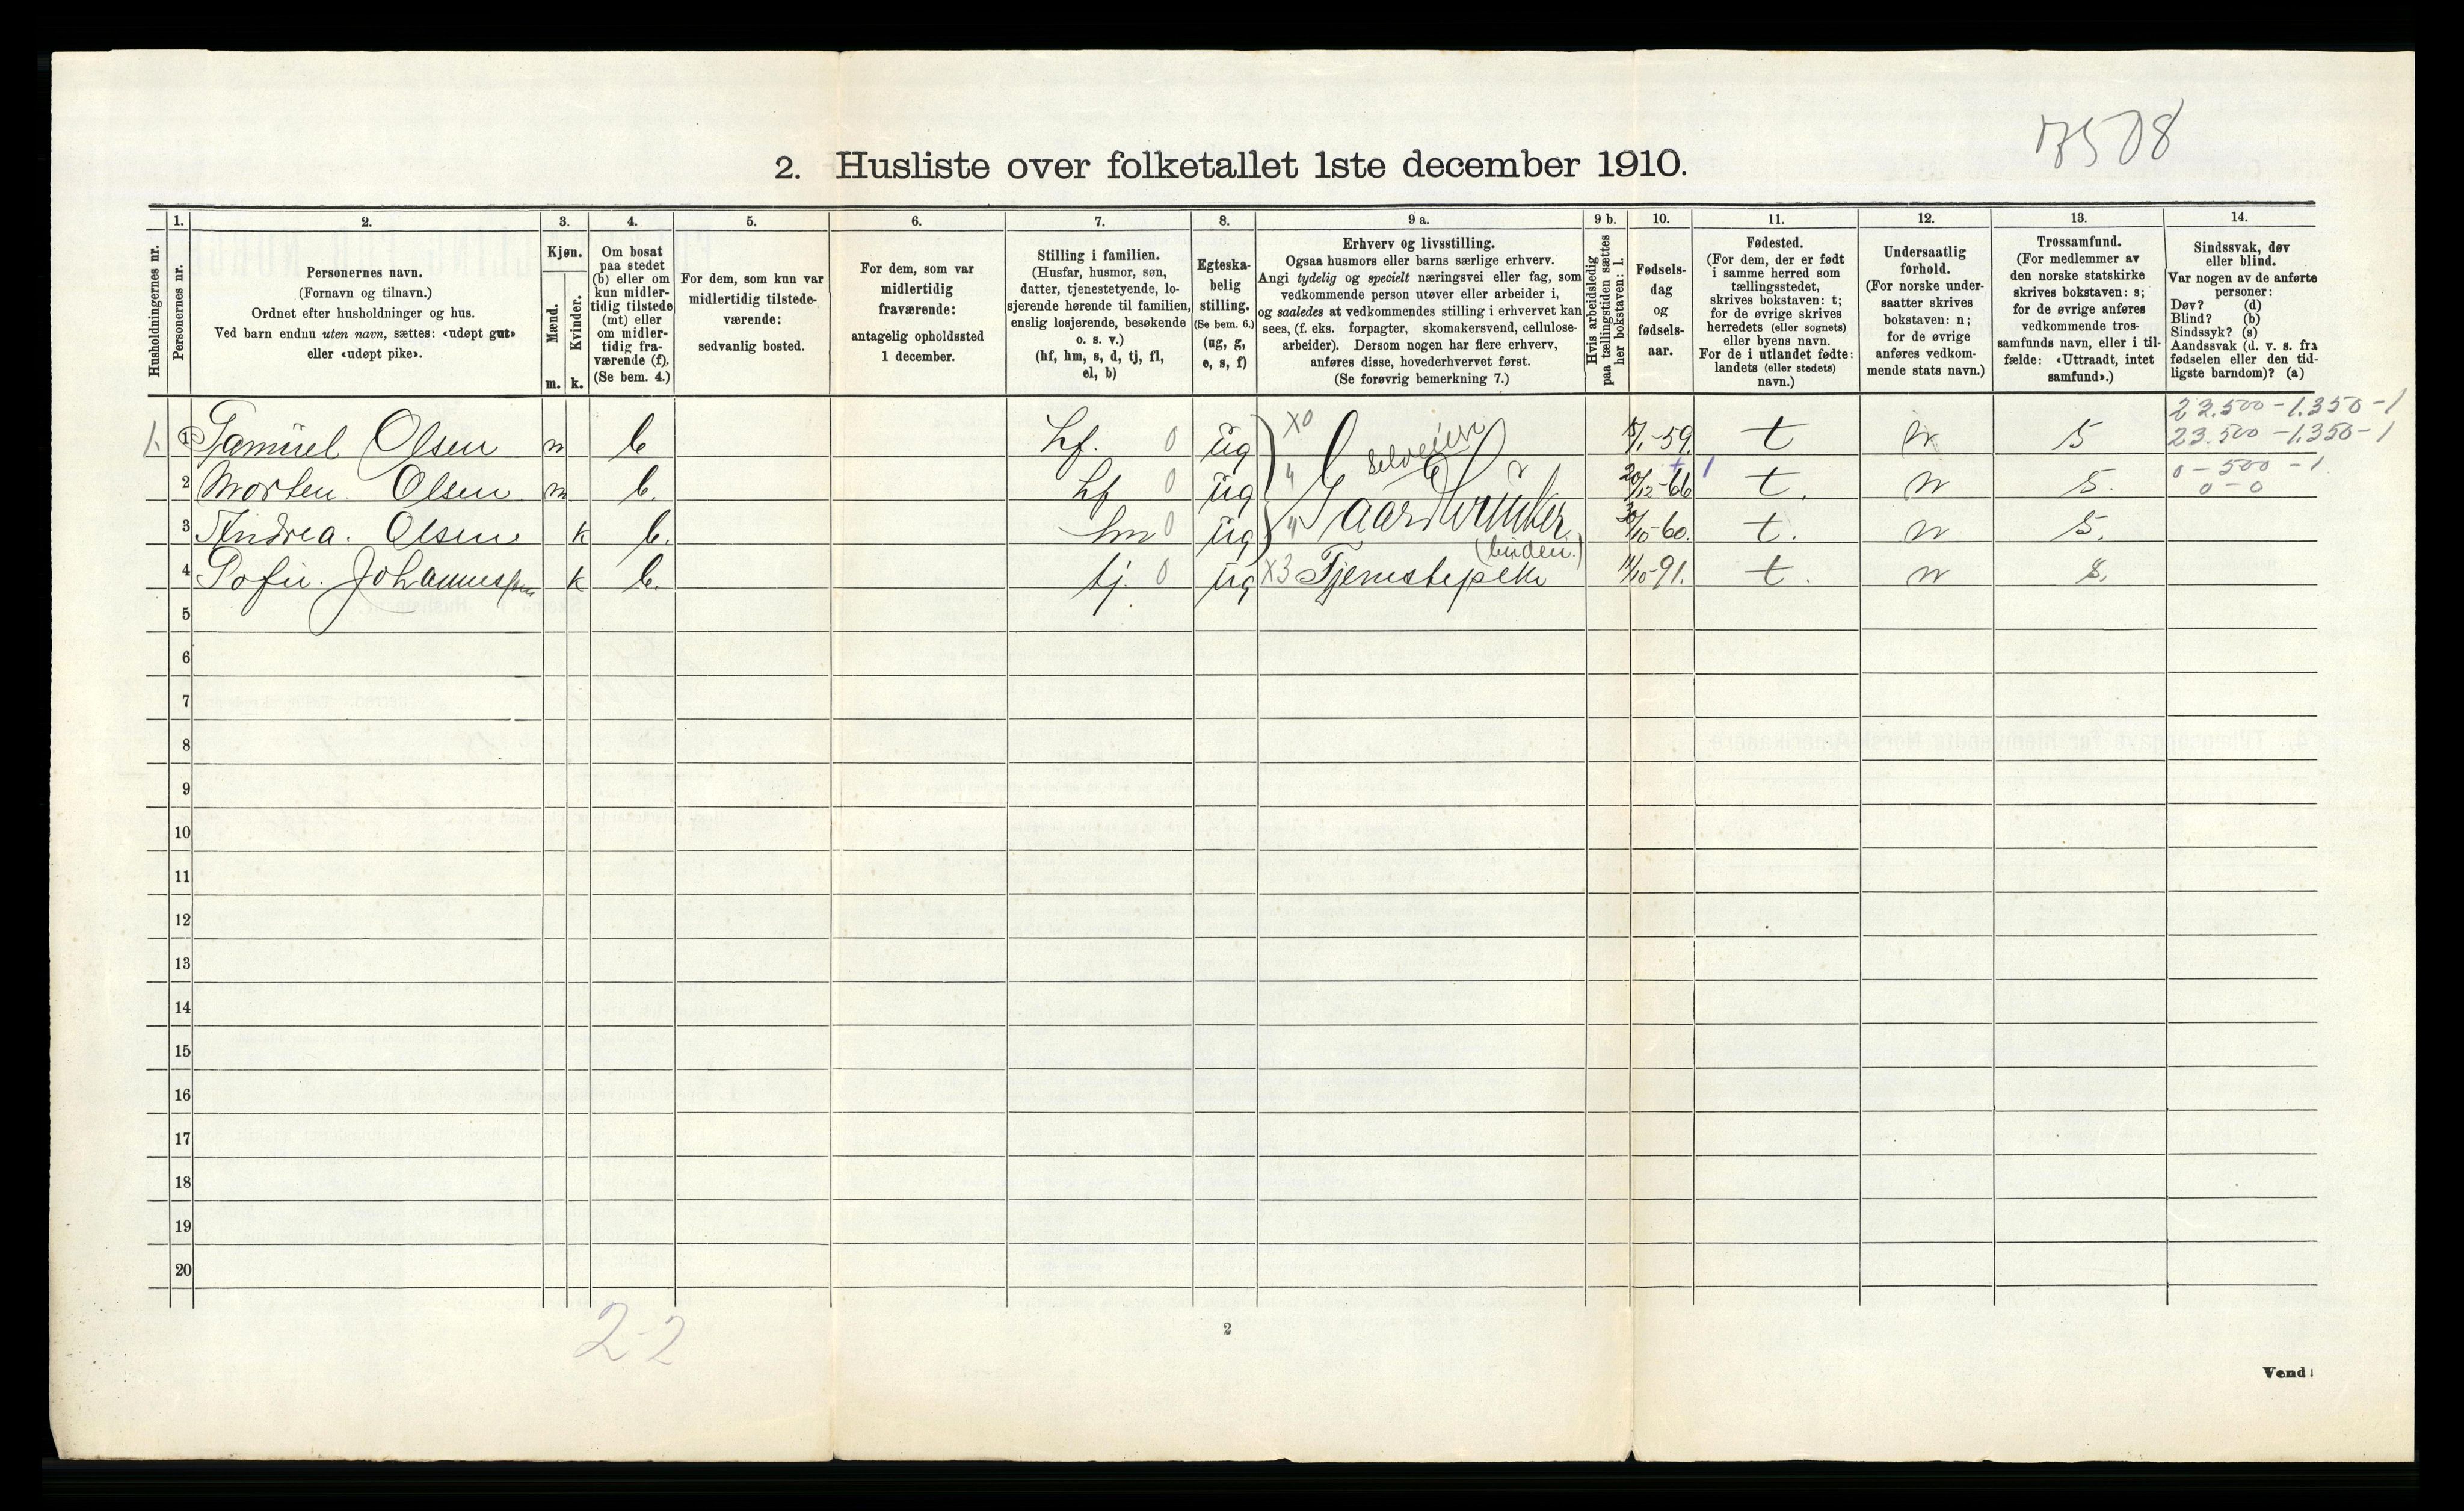 7508
2. Husliste over folketallet 1ste december 1910.
Husholdningernes nr.
1.
Personernes nr.
2.
Personernes navn.
(Fornavn og tilnavn.)
Ordnet efter husholdninger og hus.
Ved barn endnu uten navn, sættes: «udøpt gut»
eller «udøpt pike».
3.
Kjøn.
Mænd.
Kvinder.
m. k.
4.
Om bosat
paa stedet
(b) eller om
kun midler-
tidig tilstede
(mt) eller
om midler-
tidig fra-
værende (f).
(Se bem. 4.)
5.
For dem, som kun var
midlertidig tilstede-
værende:
sedvanlig bosted.
6.
For dem, som var
midlertidig
fraværende:
antagelig opholdssted
1 december.
7.
Stilling i familien.
(Husfar, husmor, søn,
datter, tjenestetyende, lo-
sjerende hørende til familien,
enslig losjerende, besøkende
o. s. v.)
(hf, hm, s, d, tj, fl,
el, b)
8.
Egteska-
belig
stilling.
(Se bem. 6.)
(ug, g,
e, s, f)
9 a.
Erhverv og livsstilling.
Ogsaa husmors eller barns særlige erhverv.
Angi tydelig og specielt næringsvei eller fag, som
vedkommende person utøver eller arbeider i,
og saaledes at vedkommendes stilling i erhvervet kan
sees, (f. eks. forpagter, skomakersvend, cellulose-
arbeider). Dersom nogen har flere erhverv,
anføres disse, hovederhvervet først.
(Se forøvrig bemerkning 7.)
9 b.
Hvis arbeidsledig
paa tællingstiden sættes
her bokstaven: l.
10.
Fødsels-
dag
og
fødsels-
aar.
11.
Fødested.
(For dem, der er født
i samme herred som
tællingsstedet,
skrives bokstaven: t;
for de øvrige skrives
herredets (eller sognets)
eller byens navn.
For de i utlandet fødte:
landets (eller stedets)
navn.)
12.
Undersaatlig
forhold.
(For norske under-
saatter skrives
bokstaven: n;
for de øvrige
anføres vedkom-
mende stats navn.)
13.
Trossamfund.
(For medlemmer av
den norske statskirke
skrives bokstaven: s;
for de øvrige anføres
vedkommende tros-
samfunds navn, eller i til-
fælde: «Uttraadt, intet
samfund».)
14.
Sindssvak, døv
eller blind.
Var nogen av de anførte
personer:
Døv? (d)
Blind? (b)
Sindssyk? (s)
Aandssvak (d. v. s. fra
fødselen eller den tid-
ligste barndom)? (a)
23.500 - 1.350 - 1
1. 1 Samuel Olsen m b hf. 0 ug X0 selveier 15/1-59. t n s 23.500 - 1.350 - 1
2 Morten Olsen m b. hf 0 ug " Gaardbruker 20/12-66 t. n s. 0 - 500 - 1
0 - 0
3 Andrea. Olsen k b. hm 0 ug " 30/10-60. t. n s.
4 Sofie. Johannessen k b. tj. 0 ug X3 Tjenestepike 14/10-91. t. n s.
5
6
7
8
9
10
11
12
13
14
15
16
17
18
19
20
2-2
2
Vend!